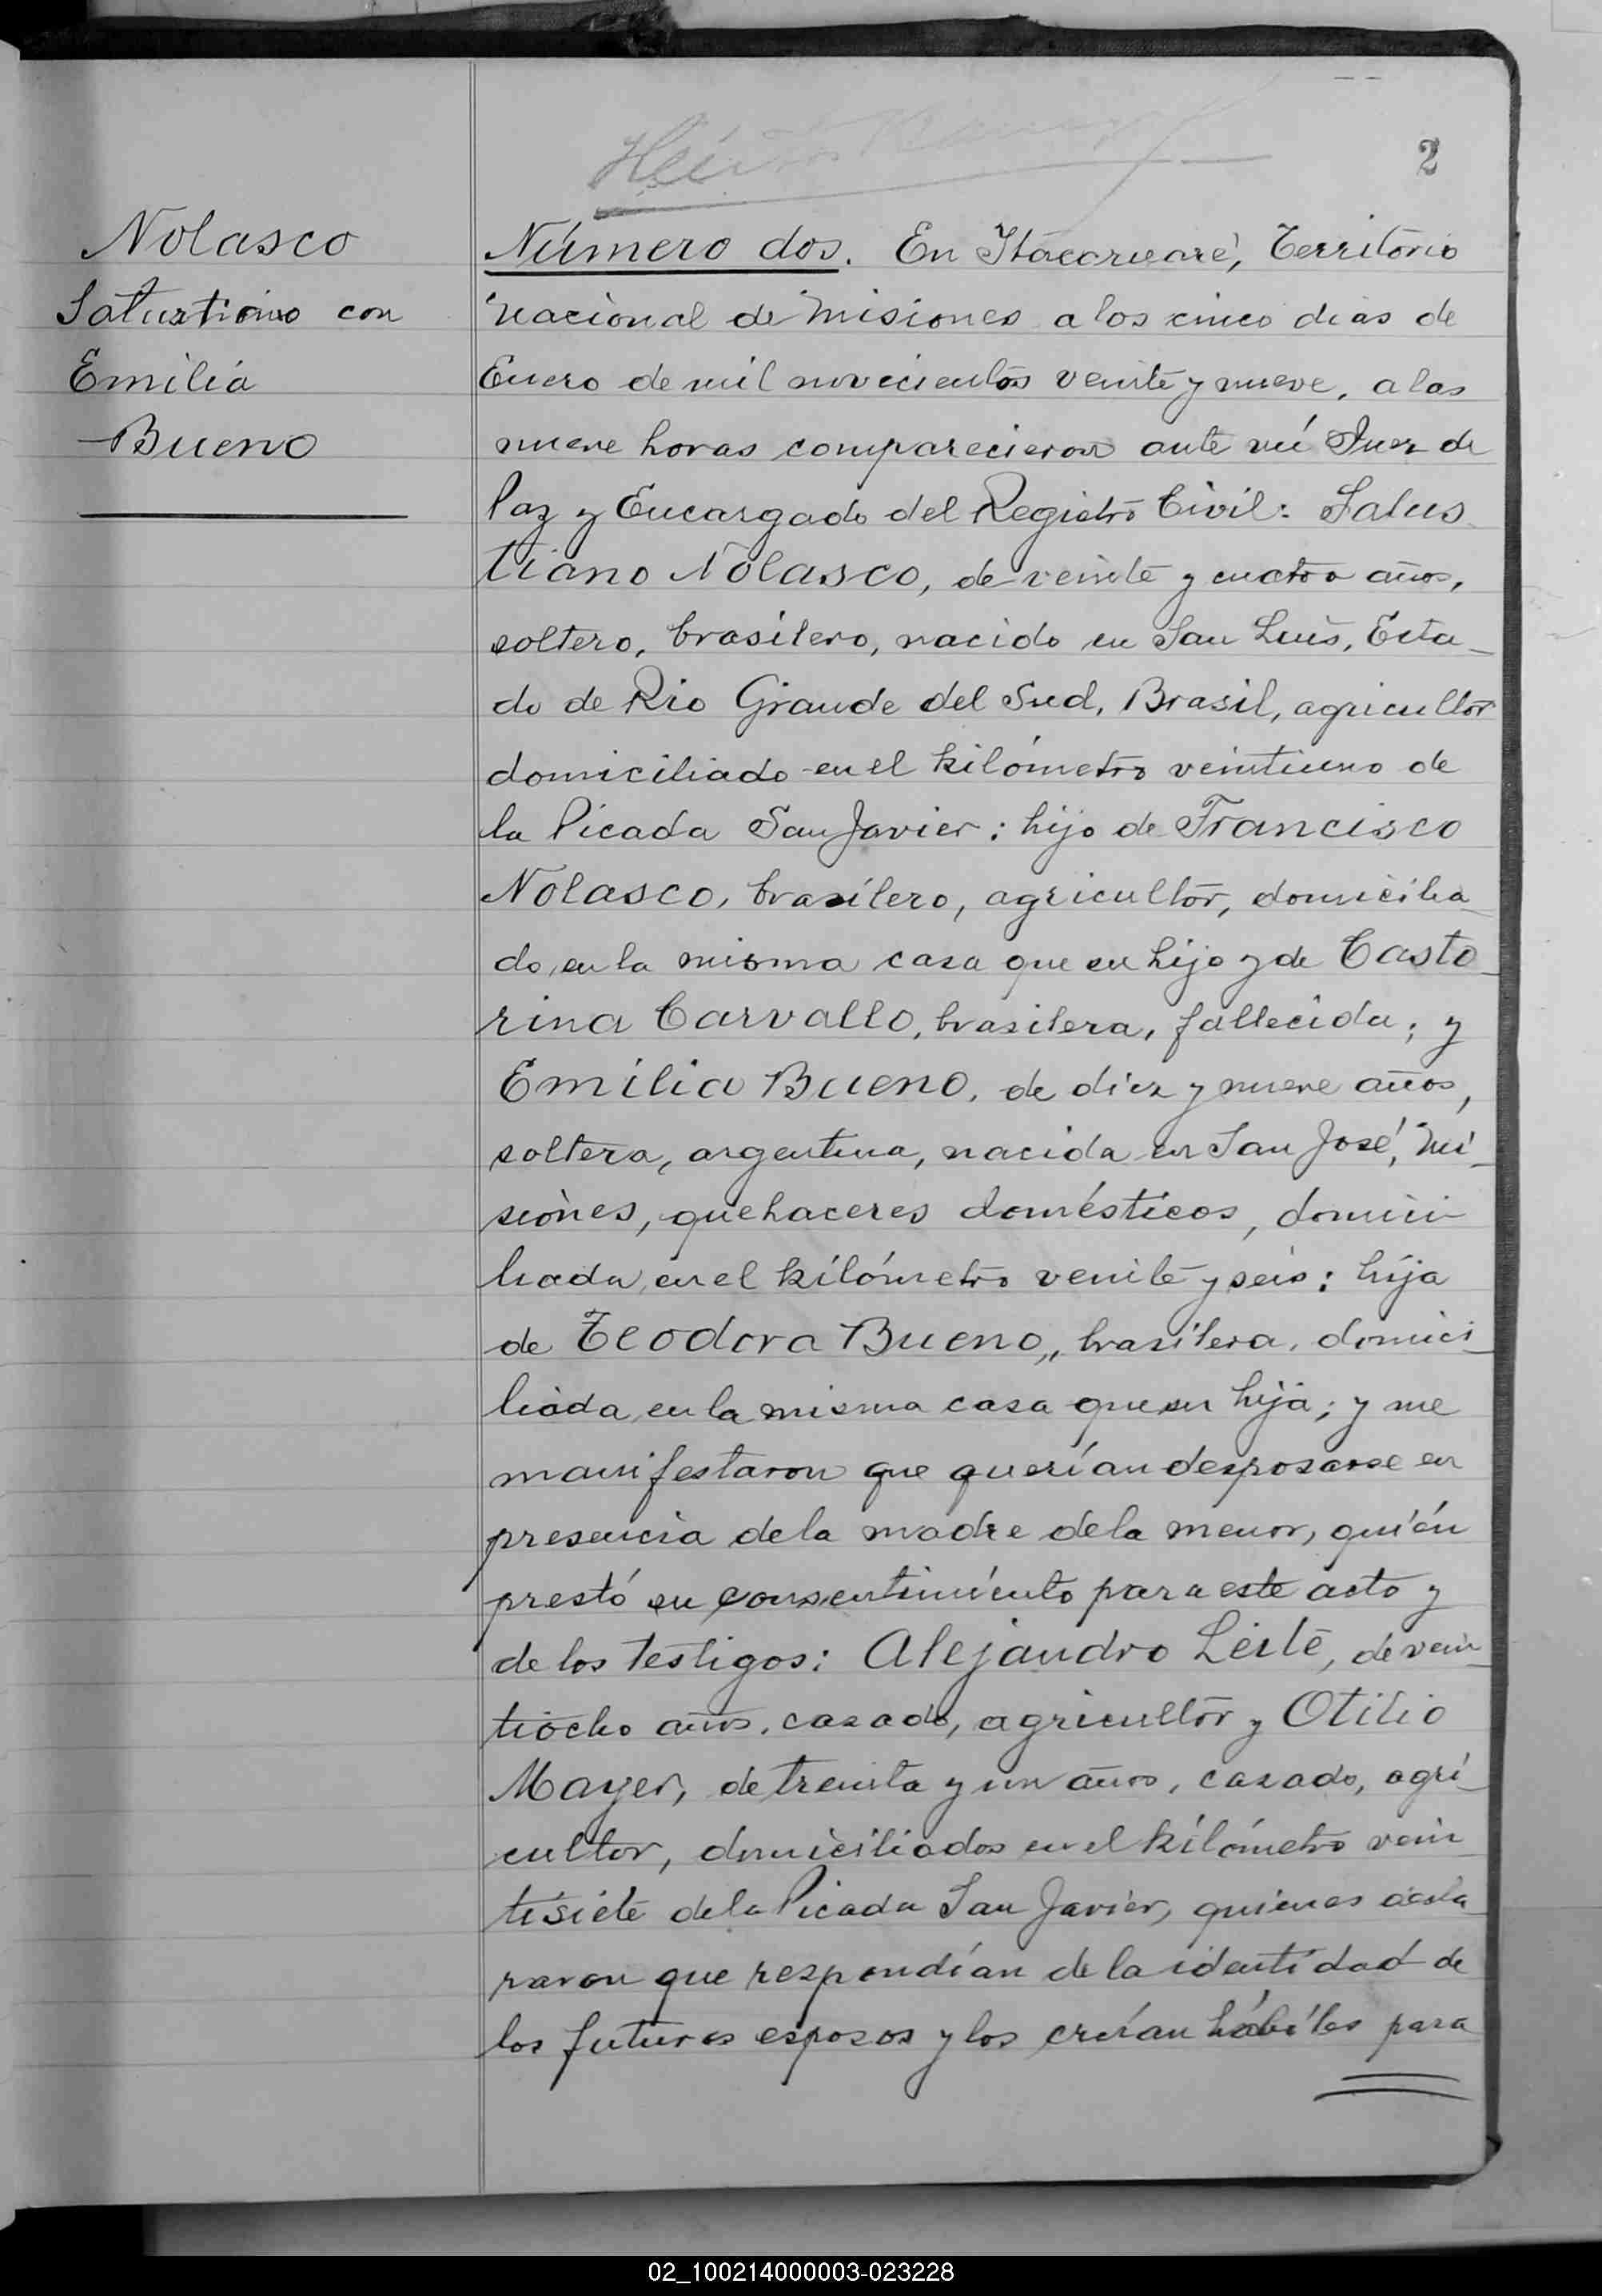 2
Nolasco
Salustiano con
Emilia
Bueno
Número dos. En Itacaruaré, Territorio
Nacional de Misiones a los cinco dias de
Enero de mil novecientos veinte y nueve, a las
nueve horas comparecieron ante mí Juez de
Paz y Encargado del Registro Civil: Salus
tiano Nolasco, de veinte y cuatro años,
soltero, brasilero, nacido en San Luis, Esta-
do de Rio Grande del Sud, Brasil, agricultor
domiciliado en el kilómetro veintiuno de
la Picada San Javier; hijo de Francisco
Nolasco, brasilero, agricultor, domicilia-
do, en la misma casa que su hijo y de Casto-
rina Carvallo, brasilera, fallecida; y
Emilia Bueno, de diez y nueve años,
soltera, argentina, nacida en San José, Mi-
siones, quehaceres domésticos, domici-
liada, en el kilómetro veinte y seis: hija
de Teodora Bueno,, brasilera, domici-
liada, en la misma casa que su hija; y me
manifestaron que querían desposarse en
presencia de la madre de la menor, quién
prestó su consentimiento para este acto y
de los testigos: Alejandro Leite, de vein-
tiocho años, casado, agricultor y Otilio
Mayer, de treinta y un años, casado, agri-
cultor, domiciliados en el kilómetro vein-
tisiete de la Picada San Javier, quienes decla-
raron que respondían de la identidad de
los futuros esposos y los creían hábiles para
02_100214000003-023228